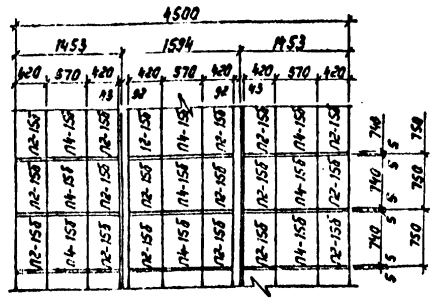 4500
1453 1594 1453
420 570 420 420 570 420 420 570 420
43 92 92 43
П2-15б П4-15б П2-15б П2-15б П4-15б П2-15б П2-15б П4-15б П2-15б
740 5 750
П2-15б П4-15б П2-15б П2-15б П4-15б П2-15б П2-15б П4-15б П2-15б
5 740 5 750
П2-15б П4-15б П2-15б П2-15б П4-15б П2-15б П2-15б П4-15б П2-15б
5 740 5 750
5 5